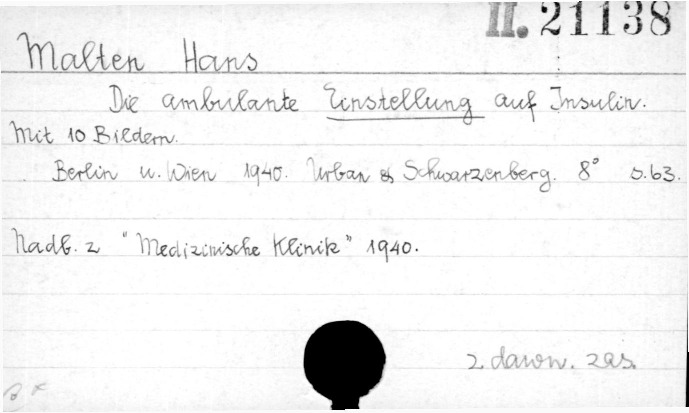 II. 21138
Malten Hans
Die ambulante Einstellung auf Insulin.
Mit 10 Bildern.
Berlin u. Wien 1940. Urban & Schwarzenberg. 8° s. 63.
Nadb. z "Medizinische Klinik" 1940.
z dawn. zas.